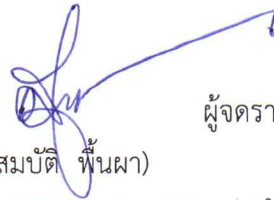 ผู้จดรา
สมบัติ พื้นผา)